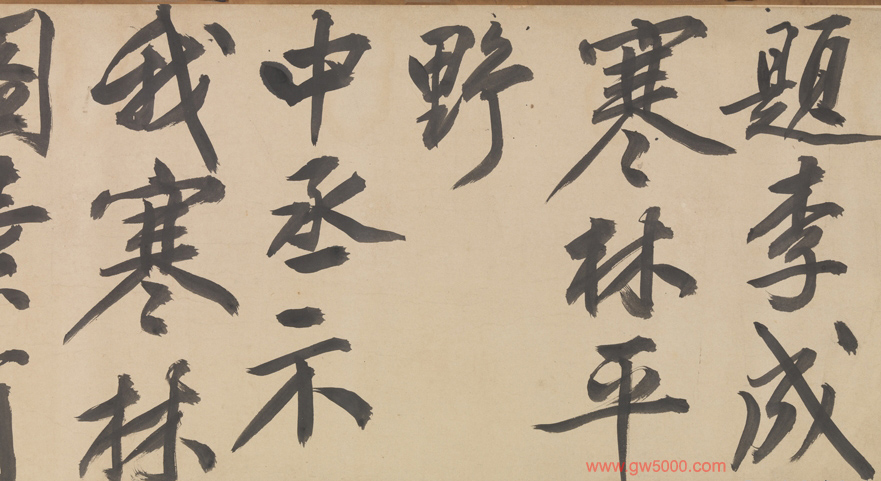 題李成
寒林平
野
中丞示
我寒林
圖
www.gw5000.com